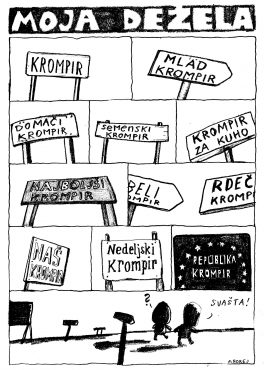 MOJA DEŽELA
KROMPIR
MLAD
KROMPIR
DOMAČI
KROMPIR.
SEMENSKI
KROMPIR
KROMPIR
ZA KUHO
NAJBOLJŠI
KROMPIR
BELI
OMPIR
RDEČ
KROMPI
NAŠ
KROMPIR
Nedeljski
Krompir
REPUBLIKA
KROMPIR
?
SVAŠTA!